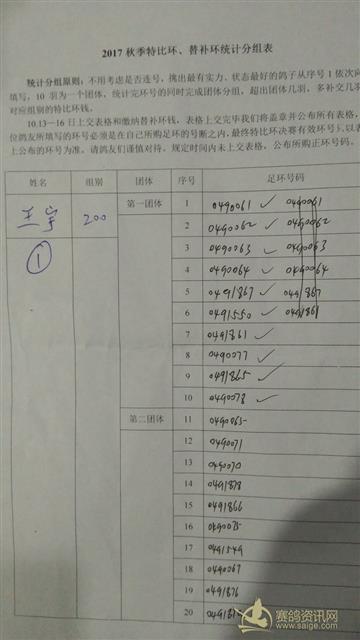 2017 秋季特比环、替补环统计分组表
统计分组原则：不用考虑是否连号，挑出最有实力、状态最好的鸽子从序号 1 依次向
填写，10 羽为一个团体，统计完环号的同时完成团体分组，超出团体几羽，多补交几羽
对应组别的特比环钱。
10.13—16 日上交表格和缴纳替补环钱，表格上交完毕我们将盖章并公布所有表格，
位鸽友所填写的环号必须是在自己所购足环的号断之内，最终特比环决赛有效环号，以表
上公布的环号为准。请鸽友们谨慎对待。规定时间内未上交表格，公布所购正环号码。
姓名 组别 团体 序号 足环号码
王宇 200 第一团体 1 0490061 ✓ 0490061
2 0490062 ✓ 0490062
① 3 0490063 ✓ 0490063
4 0490064 ✓ 0490064
5 0491867 ✓ 0491867
6 0491550 ✓ 0491861
7 0491861 ✓
8 0490077 ✓
9 0491865 ✓
10 0490078 ✓
第二团体 11 0490065
12 0490071
13 0490070
14 0491878
15 0491866
16 0490075
17 0491549
18 0490067
19 0491876
20
赛鸽资讯网
www.saige.com